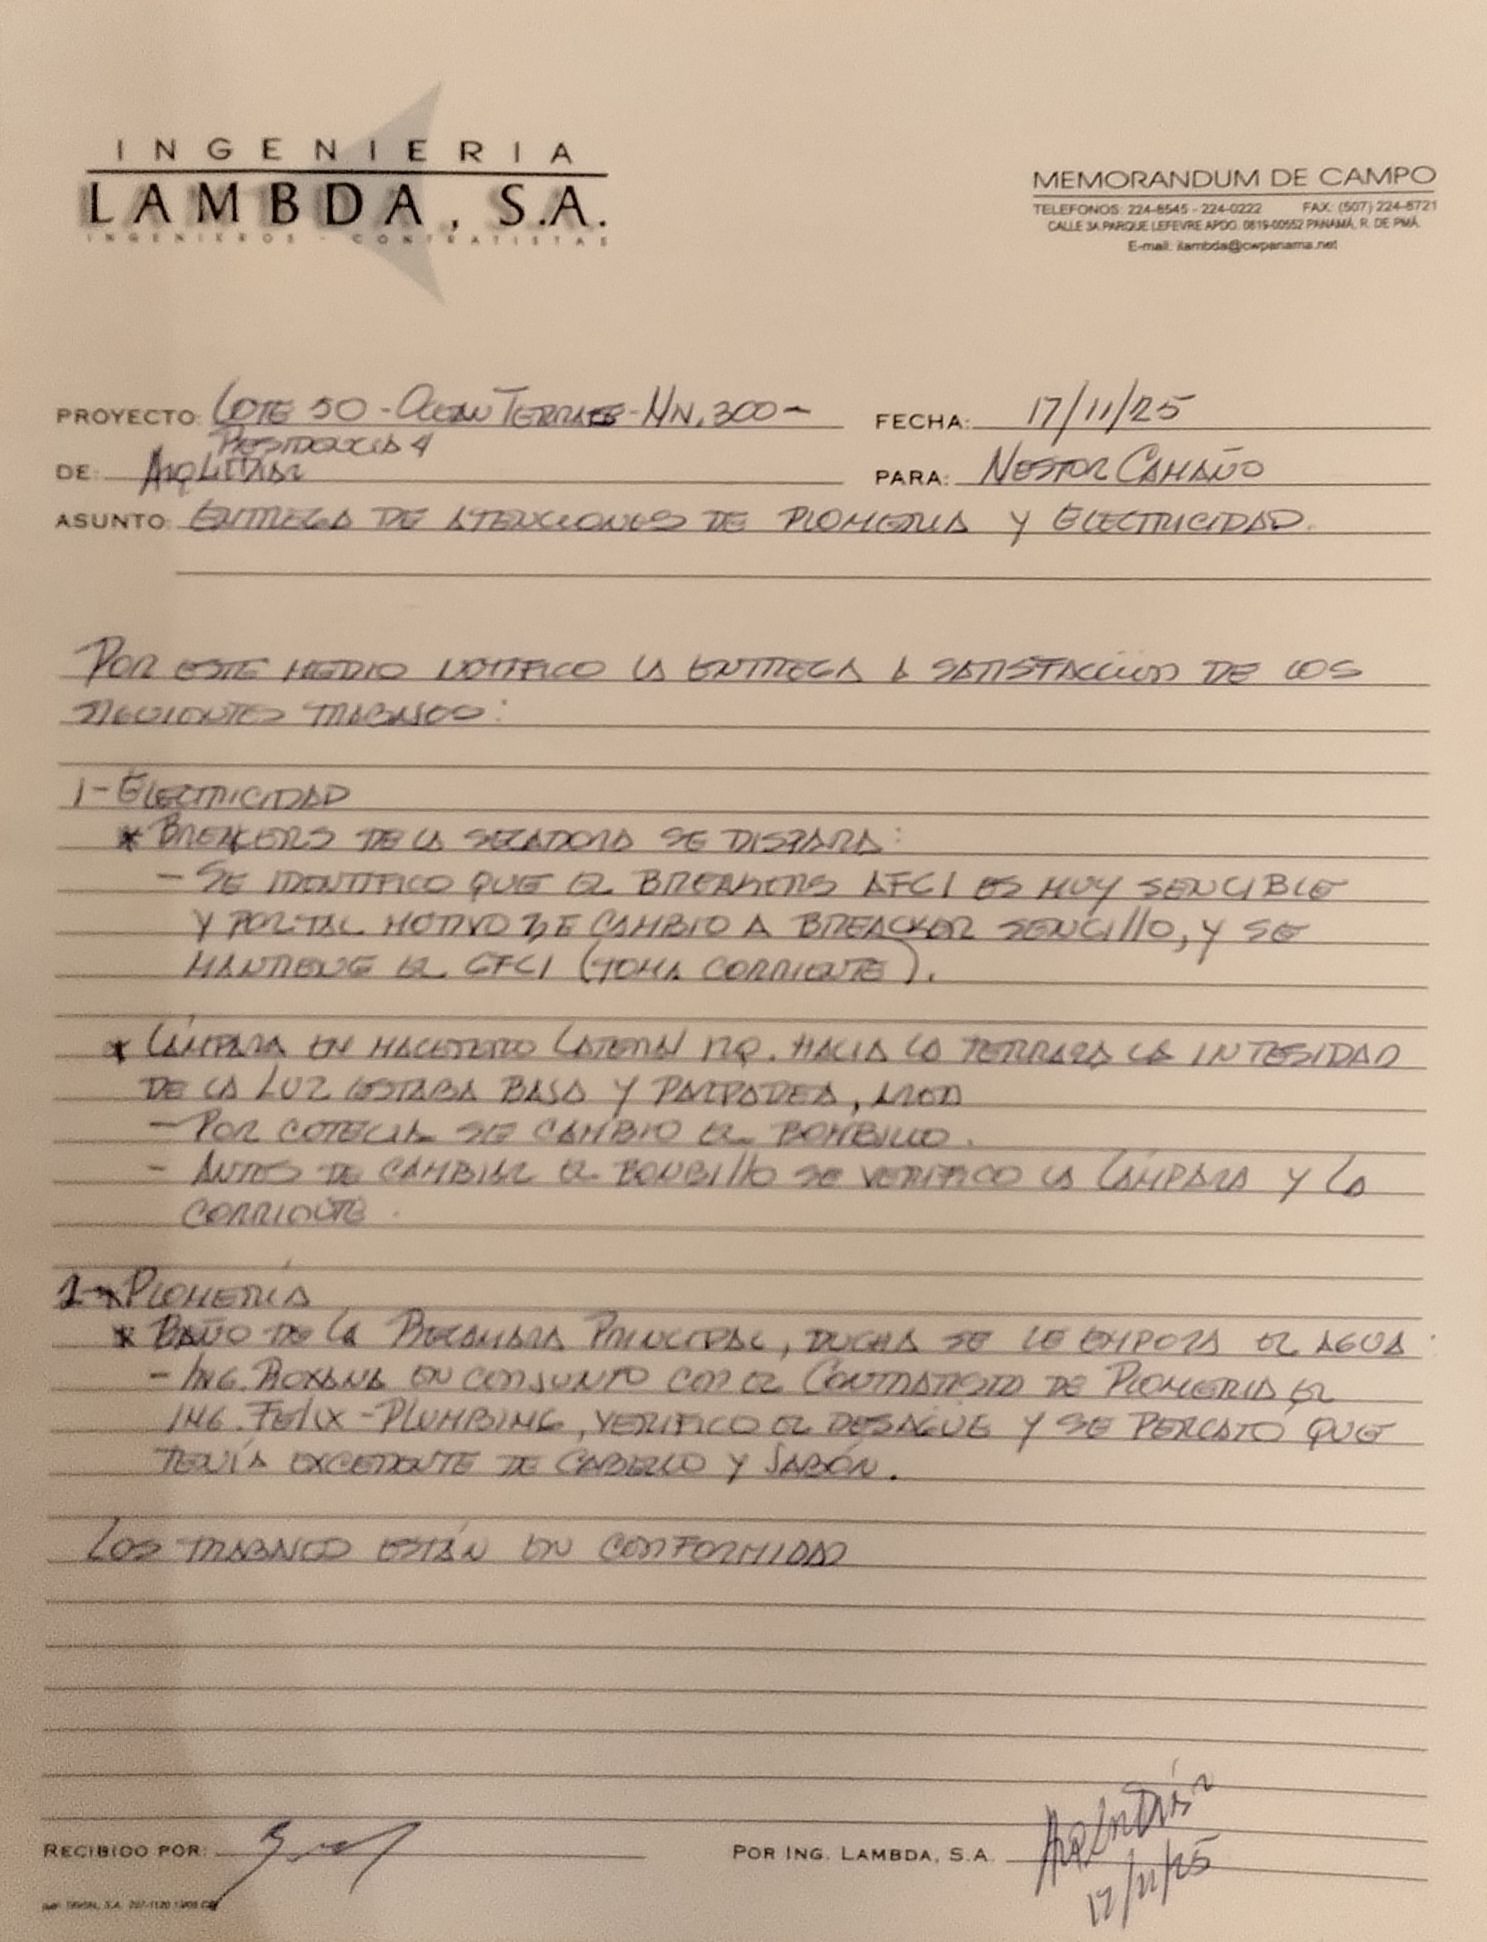 INGENIERIA
LAMBDA, S.A.
INGENIEROS - CONTRATISTAS
MEMORANDUM DE CAMPO
TELEFONOS: 224-8545 - 224-0222 FAX: (507) 224-8721
CALLE 3A PARQUE LEFEVRE APDO. 0819-00552 PANAMÁ, R. DE PMÁ.
E-mail: ilambda@cwpanama.net
PROYECTO: LOTE 50 - OCEAN TERRACES - MN. 300 -
RESIDENCIA 4
FECHA: 17/11/25
DE: ARQ.
PARA: NESTOR CAMAÑO
ASUNTO: ENTREGA DE ATENCIONES DE PLOMERIA Y ELECTRICIDAD.
POR ESTE MEDIO NOTIFICO LA ENTREGA A SATISFACCION DE LOS
SIGUIENTES TRABAJOS:
1- ELECTRICIDAD
* BREAKERS DE LA SECADORA SE DISPARA:
- SE IDENTIFICO QUE EL BREAKERS AFCI ES MUY SENCIBLE
Y POR TAL MOTIVO SE CAMBIO A BREACKER SENCILLO, Y SE
MANTIENE EL GFCI (TOMA CORRIENTE).
* LÁMPARA EN MACETERO LATERAL IZQ. HACIA LA TERRAZA LA INTESIDAD
DE LA LUZ ESTABA BAJA Y PARPADEA,
- POR SE CAMBIO EL BOMBILLO.
- ANTES DE CAMBIAR EL BOMBILLO SE VERIFICO LA LÁMPARA Y LA
CORRIENTE.
2- PLOMERÍA
* BAÑO DE LA RECAMARA PRINCIPAL, DUCHA SE LE EMPOZA EL AGUA:
- ING. ROXANA EN CONJUNTO CON EL CONTRATISTA DE PLOMERIA EL
ING. FELIX - PLUMBING, VERIFICO EL DESAGÜE Y SE PERCATÓ QUE
TENÍA EXCEDENTE DE CABELLO Y JABÓN.
LOS TRABAJOS ESTÁN EN CONFORMIDAD
RECIBIDO POR:
POR ING. LAMBDA, S.A.
17/11/25